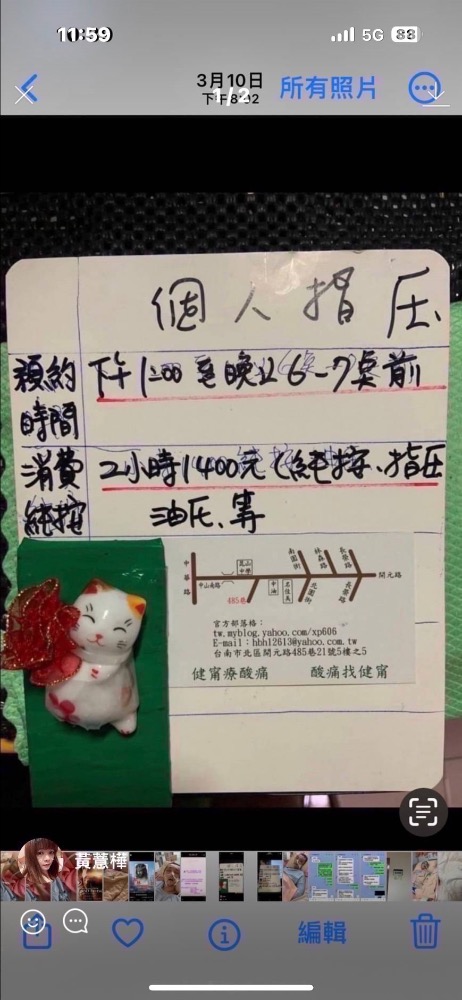 11:59
5G 88
3月10日
1/2
所有照片
個人指压
預約時間
下午1:00至晚上6-7点前
消費純按
2小時1400元(純按、指压
油压、等
中華路
中山南路
崑山中學
485巷
中油
名佳美
南園街
北園街
林森路
長榮路
開元路
官方部落格:
tw.myblog.yahoo.com/xp606
E-mail:hbh12613@yahoo.com.tw
台南市北區開元路485巷21號5樓之5
健甯療酸痛 酸痛找健甯
黃薏樺
編輯